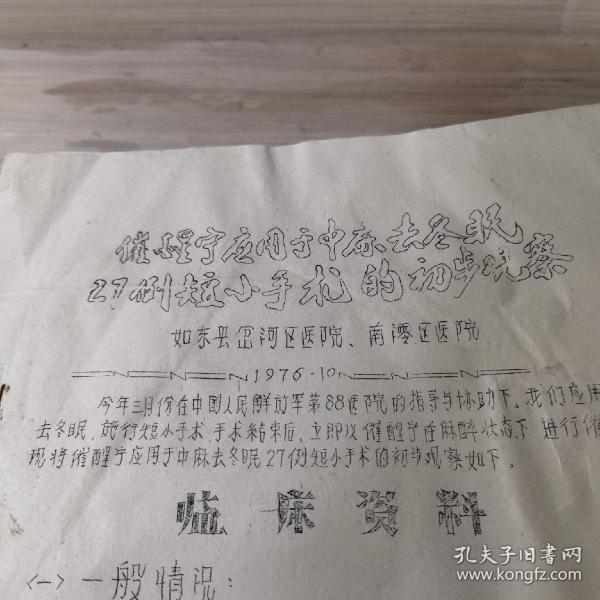 催醒宁应用于中麻去冬眠
27例短小手术的初步观察
如东县岔河区医院、南澪区医院
1976·10
今年三月份在中国人民解放军第88医院的指导与协助下,我们应用
去冬眠,施行短小手术,手术结束后,立即以催醒宁在麻醉状态下进行催
现将催醒宁应用于中麻去冬眠27例短小手术的初步观察如下。
临床资料
<一>一般情况:
孔夫子旧书网
www.kongfz.com